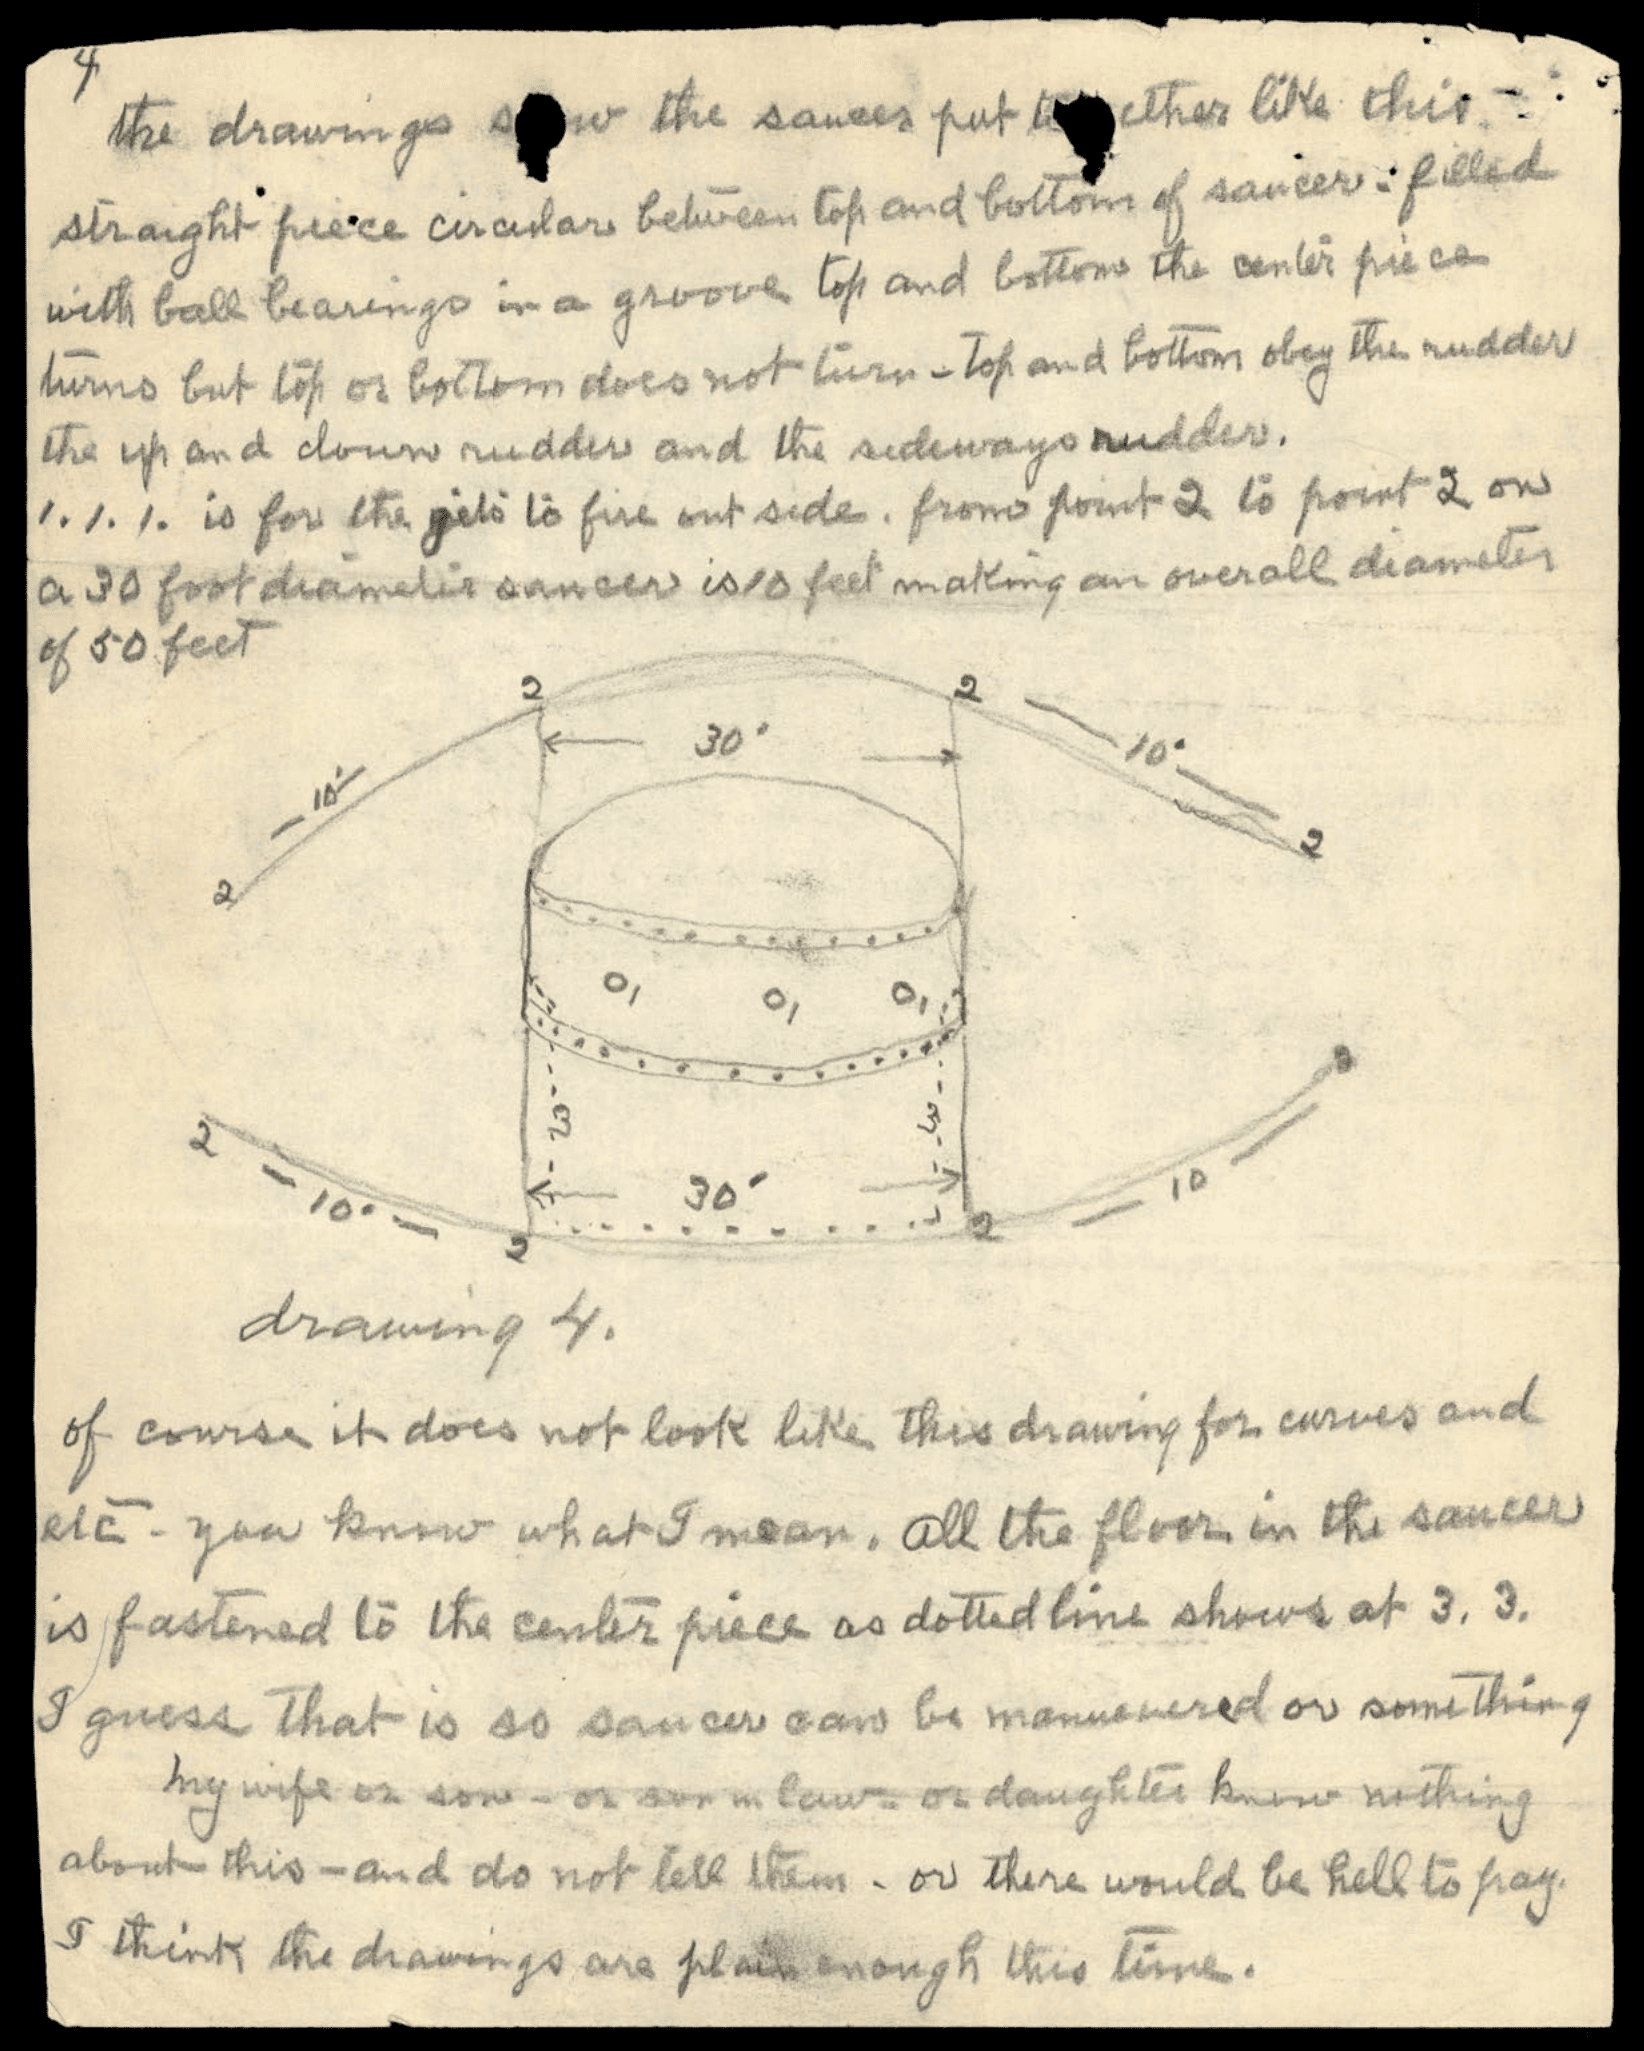 4
the drawings s w the saucer put t ether like this -
straight piece circular between top and bottom of saucer - filled
with ball bearings in a groove top and bottom the center piece
turns but top or bottom does not turn - top and bottom obey the rudder
the up and down rudder and the sideways rudder.
1. 1. 1. is for the jets to fire out side. from point 2 to point 2 on
a 30 foot diameter saucer is 10 feet making an overall diameter
of 50 feet
2 2
30'
10' 10'
2 2
0, 0, 0,
2 2
3 3
30'
10' 10
2 2
drawing 4.
of course it does not look like this drawing for curves and
etc - you know what I mean. All the floor in the saucer
is fastened to the center piece as dotted line shows at 3. 3.
I guess that is so saucer can be manuevered or something
My wife or son - or son in law - or daughter know nothing
about this - and do not tell them - or there would be hell to pay.
I think the drawings are plain enough this time.